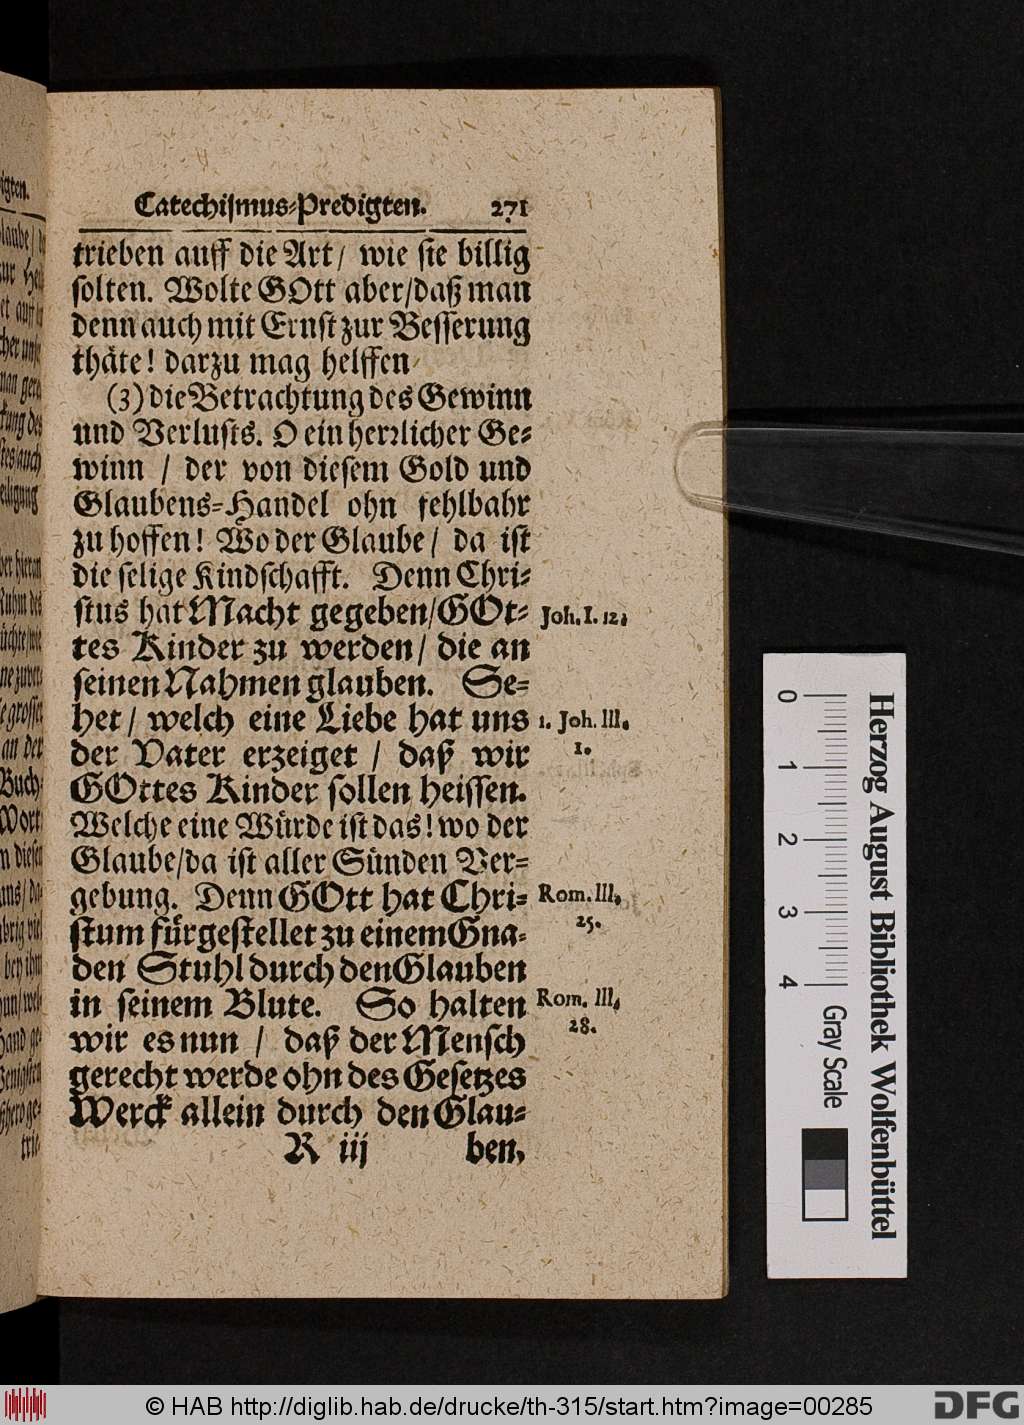 Catechismus-Predigten. 271
trieben auff die Art/ wie sie billig
solten. Wolte GOtt aber/daß man
denn auch mit Ernst zur Besserung
thäte! darzu mag helffen
(3) die Betrachtung des Gewinn
und Verlusts. O ein herrlicher Ge-
winn / der von diesem Gold und
Glaubens-Handel ohn fehlbahr
zu hoffen! Wo der Glaube/ da ist
die selige Kindschafft. Denn Chri-
stus hat Macht gegeben/GOt- Joh. I. 12.
tes Kinder zu werden/ die an
seinen Nahmen glauben. Se-
het/ welch eine Liebe hat uns 1. Joh. III.
der Vater erzeiget / daß wir 1.
GOttes Kinder sollen heissen.
Welche eine Würde ist das! wo der
Glaube/da ist aller Sünden Ver-
gebung. Denn GOtt hat Chri- Rom. III.
stum fürgestellet zu einem Gna- 25.
den Stuhl durch den Glauben
in seinem Blute. So halten Rom. III.
wir es nun / daß der Mensch 28.
gerecht werde ohn des Gesetzes
Werck allein durch den Glau-
R iij ben,
0 1 2 3 4 Gray Scale
Herzog August Bibliothek Wolfenbüttel
© HAB http://diglib.hab.de/drucke/th-315/start.htm?image=00285
DFG